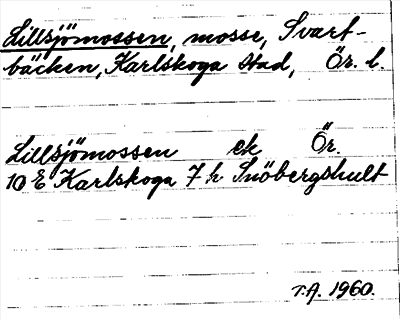 Lillsjömossen, mosse, Svart-
bäcken, Karlskoga stad, Ör. l.
Lillsjömossen ek Ör.
10 E Karlskoga 7 h Snöbergshult
T.A. 1960.